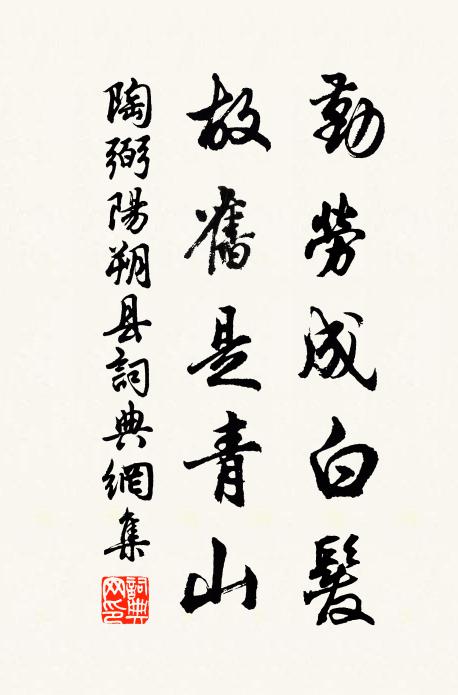 勤勞成白髮
故舊是青山
陶弼陽朔县詞典網集
詞典
网印